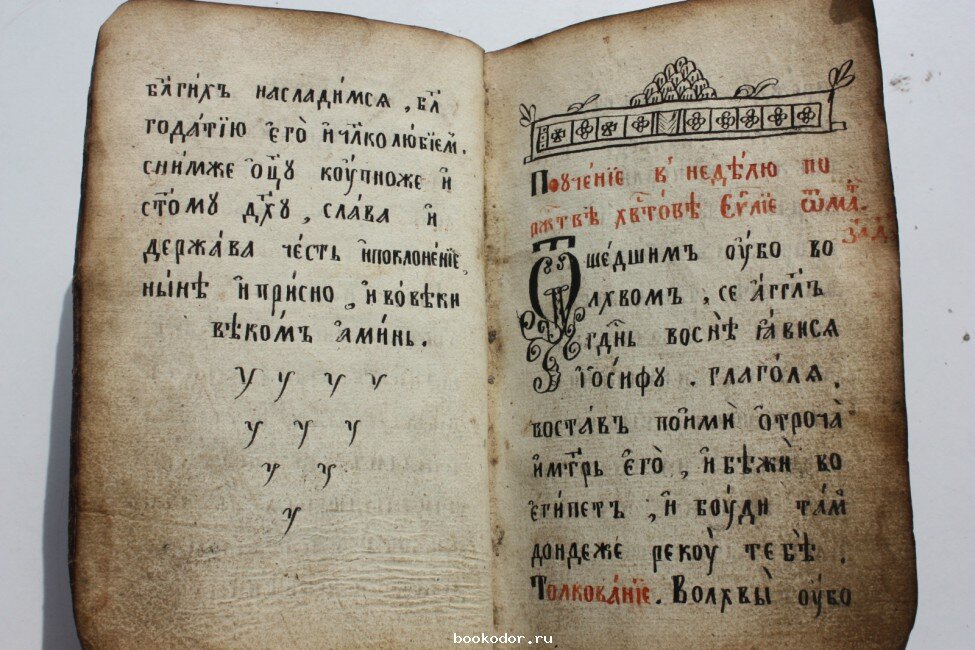 бл҃ги́хъ наслади́мсѧ , бл҃
года́тїю єго̀ и҆ чл҃колю́бїем̾.
снимже ѻ҆ц҃у коу́пноже и҆
ст҃ому дх҃у , сла́ва и҆
держа́ва че́сть и҆поклоне́нїе,
ны́нѣ и҆ при́сно , и҆ во́вѣки
вѣко́мъ а҆ми́нь .
Поуче́нїе в̾ недѣ́лю по
ржⷭ҇твѣ̀ хвⷭ҇товѣ Єѵⷢ҇лїе ѿ маⷴ҇.
за҃д
Ѿше́дшимъ оу҆́бо во
лхвомъ , се а҆́гг҃лъ
гд҃нь воснѣ̀ ꙗ҆ви́сѧ
і҆ѡ́сифу . глаго́лѧ .
воста́въ поимѝ ѻ҆троча̀
и҆ мт҃рь є҆го̀ , и҆ бѣжѝ во
єги́петъ , и҆ боу́ди та́м̾
дондеже рекоу̀ тебѣ̀ .
Толкова́нїе . Волхвы̀ оу҆́бо
bookodor.ru